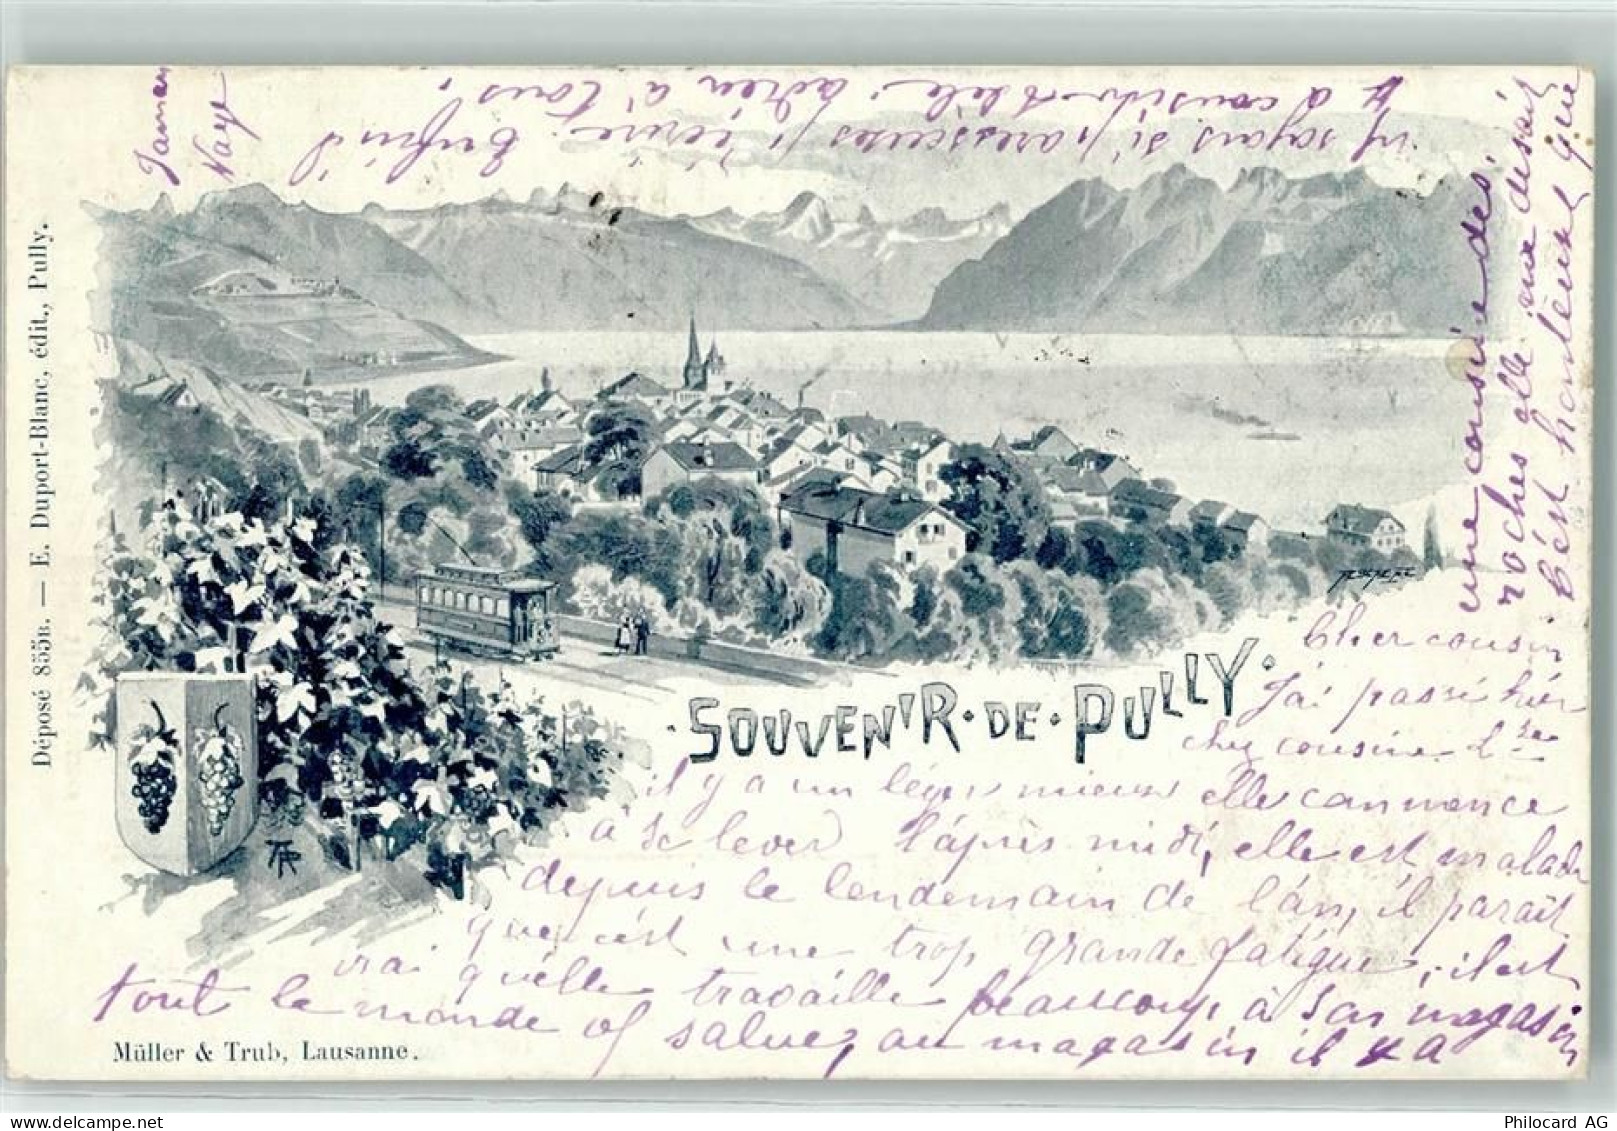 Déposé 855B. — E. Duport-Blanc, édit., Pully.
SOUVENIR · DE · PULLY
Cher cousin
J'ai passé hier
chez cousine
il y a un léger mieux elle commence
à se lever l'après midi, elle est malade
depuis le lendemain de l'án, il parait
que c'ést une trop grande fatigue, il est
vrai qu'élle travaille beaucoup, à son magasin
tout le monde
salue, au magasin il y a
une cousine des
roches elle me desait
c'ést honteux que
si paresseuses
Enfin
adieu à tous.
Jaman
Naye
Müller & Trub, Lausanne.
Philocard AG